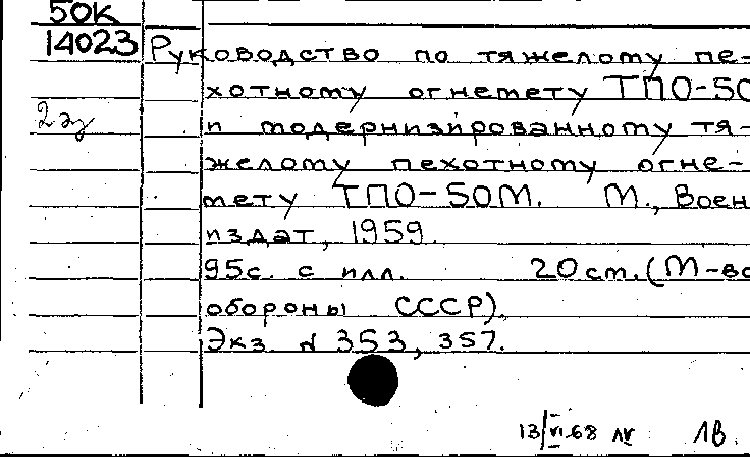 50К
14023 Руководство по тяжелому пе-
хотному огнемету ТПО-50
2 эз и модернизированному тя-
желому пехотному огне-
мету ТПО-50М. М., Воен
издат, 1959.
95с. с илл. 20 см. (М-во
обороны СССР).
Экз N 353, 357.
13/VI-68 1в.